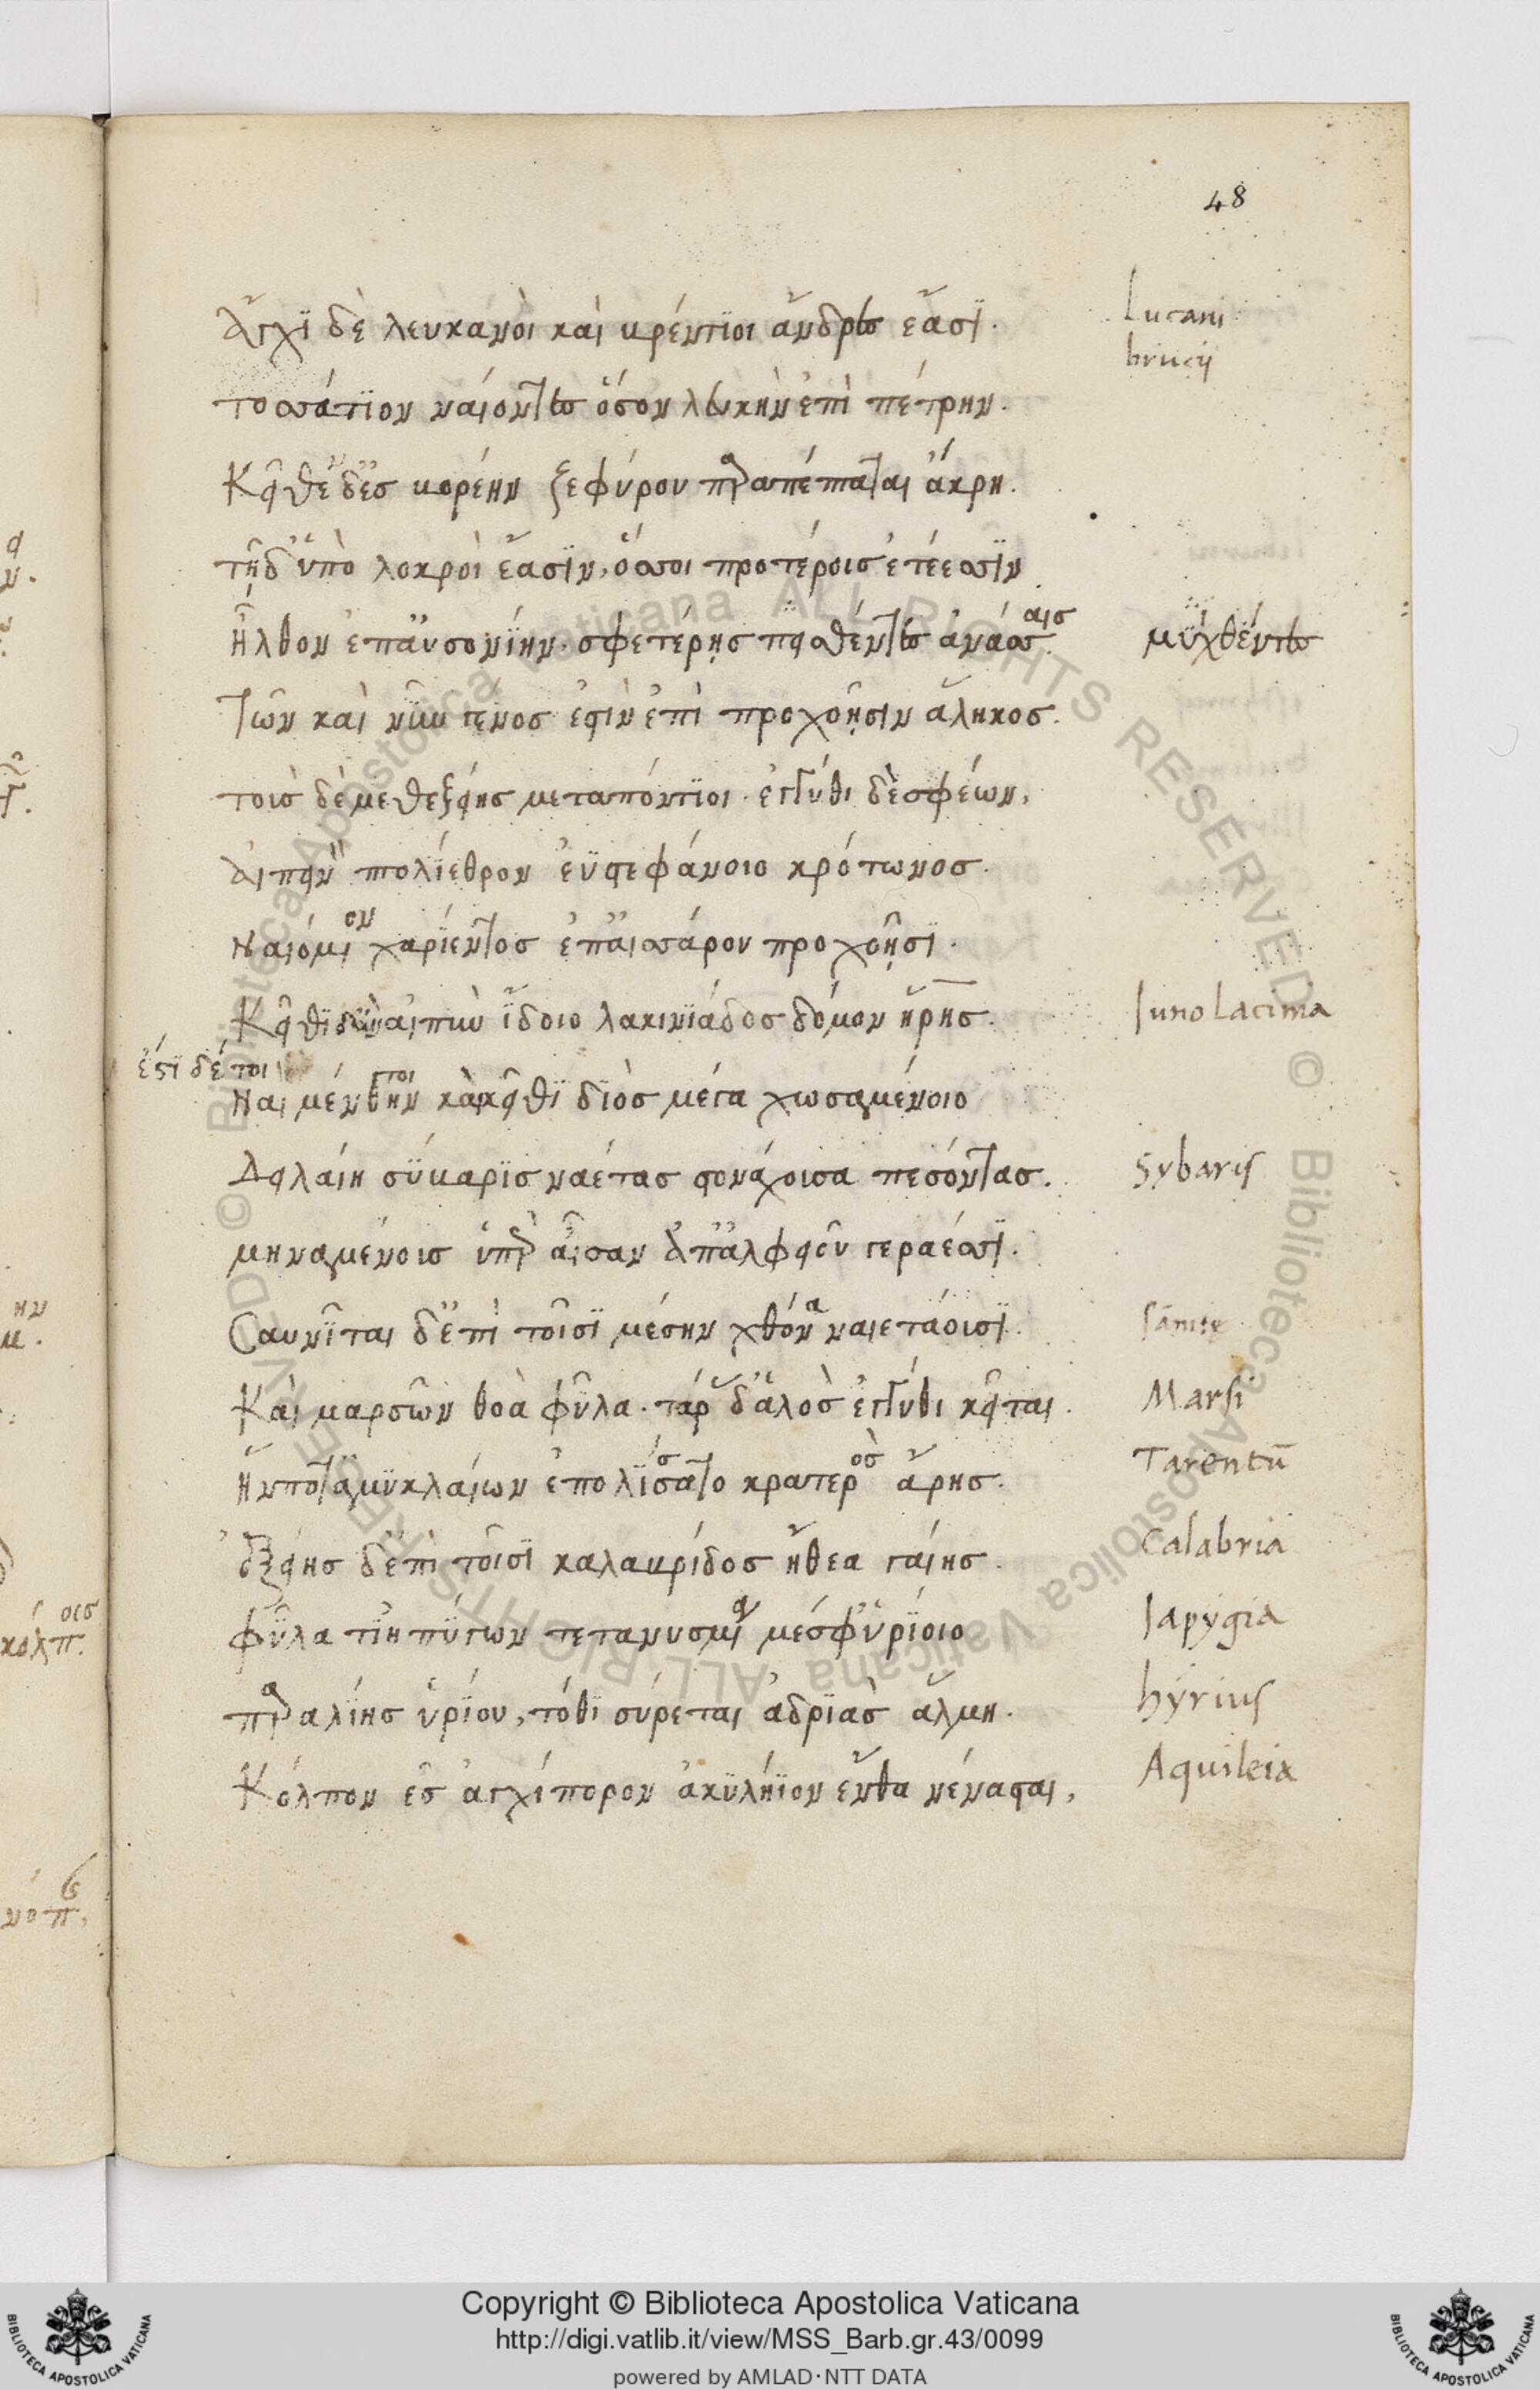 48
Ἄγχϊ δὲ λευκανοὶ καὶ βρέντϊοι ἄνδρες ἔασϊ.
Lucani
brucij
τοσσάτϊον ναίοντες ὅσον λευκὴν ἐπὶ πέτρην.
Κεῖθι δ' ἐς βορέην ζεφύρου παραπέπταται ἄκρη.
τῇ δ' ὑπὸ λοκροὶ ἔασϊν, ὅσσοι προτέροις ἐτέεσσϊν
ἦλθον ἐπ' αὐσονϊην. σφετέρῃς προθέντες ἀνάσσ.αις
μϋχθέντες
Τῶν καὶ νῦν γένος ἐστὶν ἐπὶ προχοῇσιν ἄληκος.
τοὶς δέ μεθ' ἑξείης μεταπόντϊοι. ἐγγύθι δὲ σφέων,
Αἰπεὺ πτολίεθρον ἐϋστεφάνοιο κρότωνος.
Ναιόμενον χαρϊεντος ἐπ' αἰσάρου προχοῇσϊ.
Κεῖθϊ αἰπὺν ἴδοιο λακινϊάδος δόμον ἥρης.
Juno Lacima
ἔστϊ δέ τοι
Ναι μὲν τοι κἀκεῖθϊ δϊὸς μέγα χωσαμένοιο
Δειλαίη σΰβαρϊς ναέτας στονάχοισα πεσόντας.
Sybaris
μηναμένοις ὑπὲρ αἶσαν ἐπ' ἀλφειοῦ γεράεσσϊ.
Σαυνῖται δ' ἐπὶ τοῖσϊ μέσην χθόνα ναιετάοισϊ.
sānite
Καὶ μαρσῶν θοὰ φῦλα. τάρας δ' ἁλὸς ἐγγύθι κεῖται.
Marsi
Ἥν ποτ' ἀμϋκλαίων ἐπολΐσσατο κρατερὸς ἄρης.
Tarentū
Ἑξείης δ' ἐπὶ τοῖσϊ καλαβρίδος ἤθεα γαίης.
Calabria
φῦλα τ' ἰηπύγων τετανυσμένα μέσφ' ὑρΐοιο
Japygia
παραλΐης ὑρίου, τόθϊ σύρεται ἀδρϊὰς ἅλμη.
hyrius
Κόλπον ἐς ἀγχίπορον ἀκϋλήϊον ἔνθα νένασται,
Aquileia
Copyright © Biblioteca Apostolica Vaticana
http://digi.vatlib.it/view/MSS_Barb.gr.43/0099
powered by AMLAD·NTT DATA